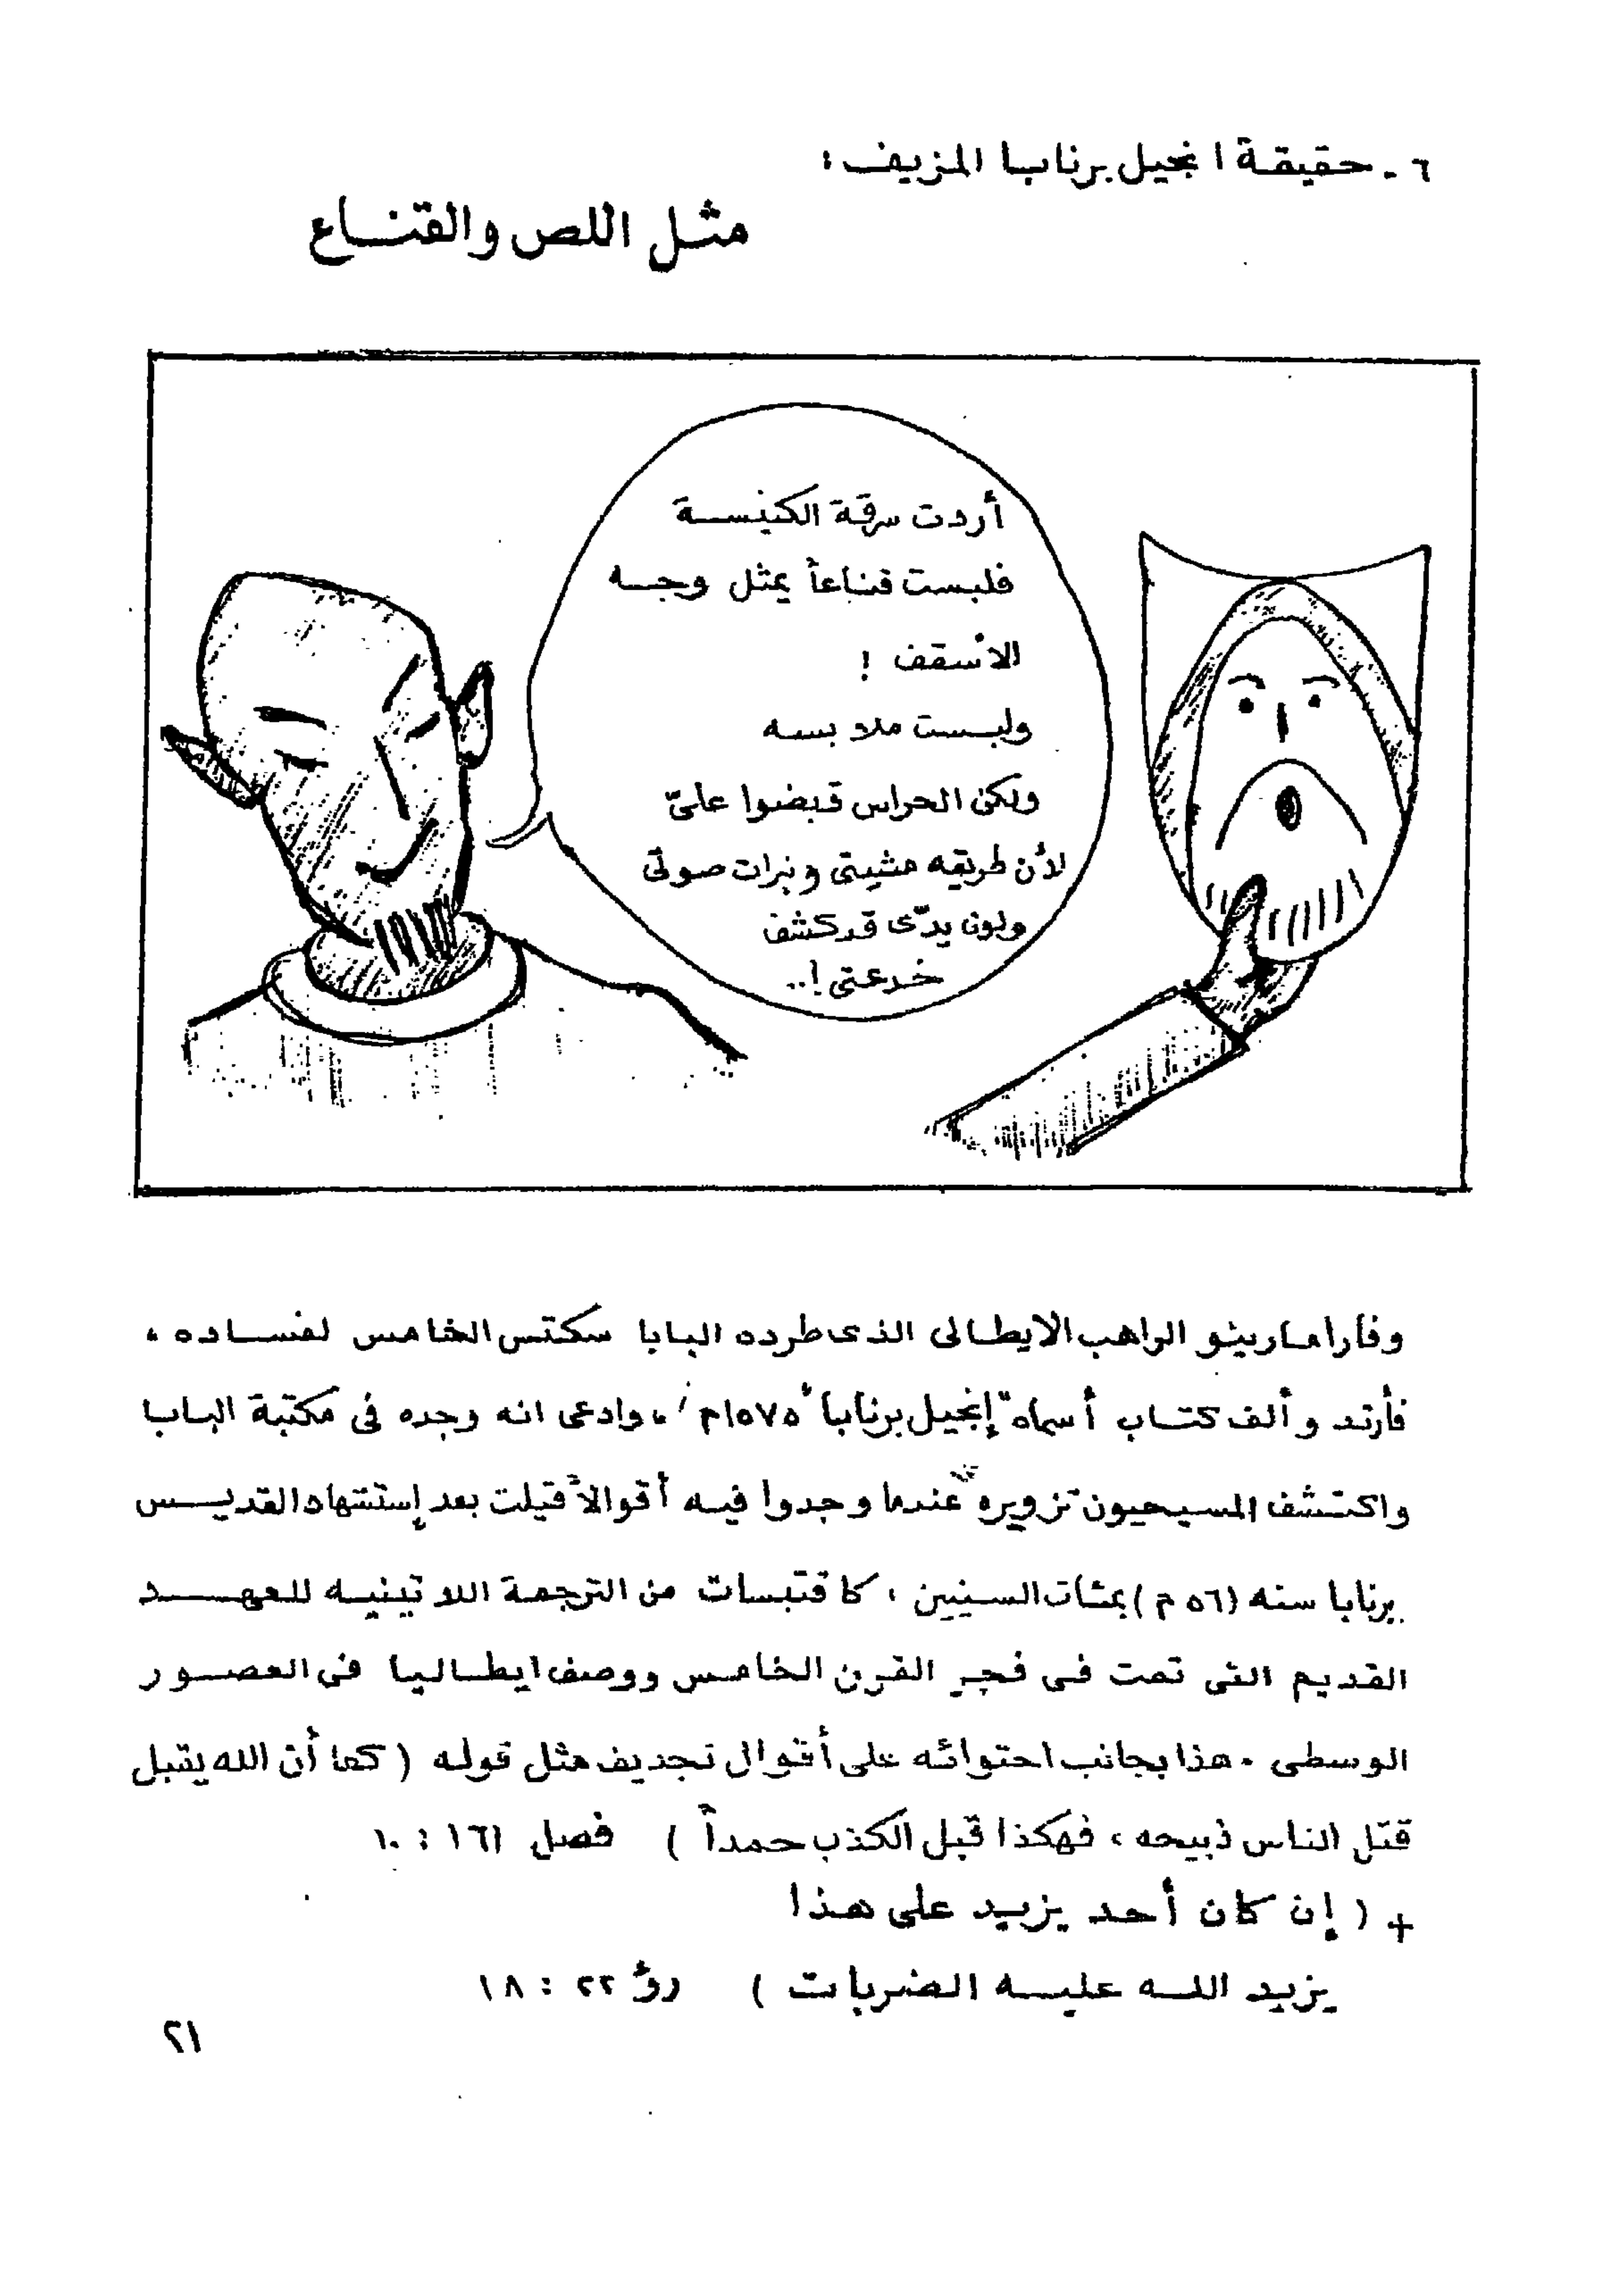 ٦ - حقيقة انجيل برنابا المزيف :
مثل اللص والقناع
أردت سرقة الكنيسة
فلبست قناعاً يمثل وجه
الأسقف !
ولبست ملابسه
ولكن الحراس قبضوا علىّ
لأن طريقه مشيتى ونبرات صوتى
ولون يدّى قد كشف
خدعتى !..
وفارا مارينو الراهب الايطالى الذى طرده البابا سكتس الخامس لفساده ،
فأرتد وألف كتاب أسماه "إنجيل برنابا" ١٥٧٥م ، وادعى انه وجده فى مكتبة الباب
واكتشف المسيحيون تزويره عندما وجدوا فيه أقوالاً قيلت بعد إستشهاد القديس
برنابا سنه (٥٦ م) بمئات السنين ، كاقتبسات من الترجمة اللاتينيه للعهد
القديم التى تمت فى فجر القرن الخامس ووصف ايطاليا فى العصور
الوسطى . هذا بجانب احتوائه على أقوال تجديف مثل قوله ( كما أن الله يقبل
قتل الناس ذبيحه ، فهكذا قبل الكذب حمداً ) فصل ١٦١ : ١٠
+ ( إن كان أحد يزيد على هذا
يزيد الله عليه الضربات ) رؤ ٢٢ : ١٨
٢١